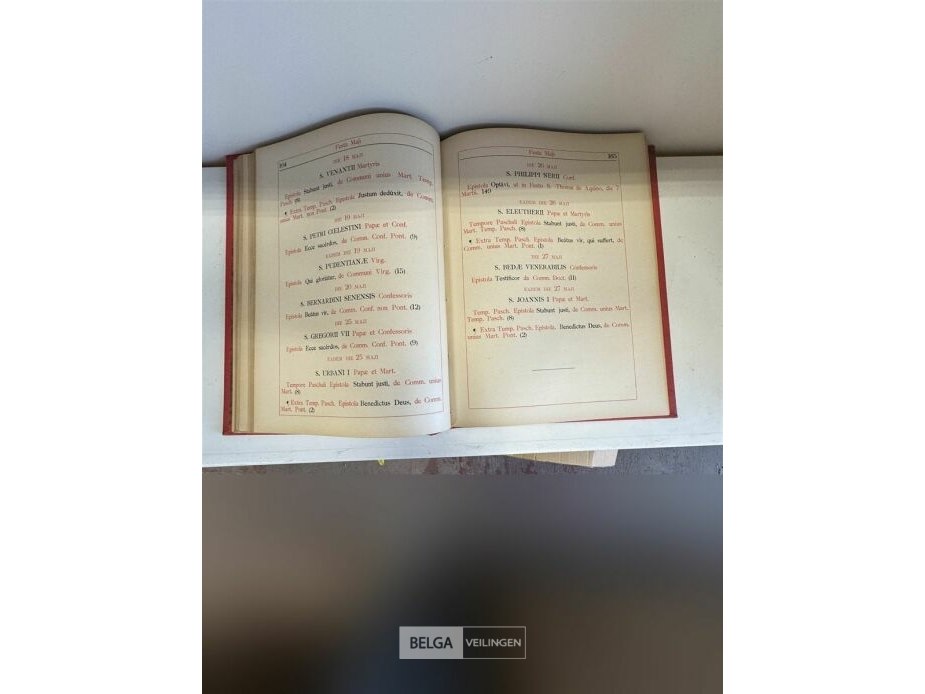 164
Festa Maji
DIE 18 MAJI
S. VENANTII Martyris
Epistola Stabunt justi, de Communi unius Mart. Temp.
Pasch. (8)
Extra Temp. Pasch. Epistola Justum deduxit, de Comm.
unius Mart. non Pont. (2)
DIE 19 MAJI
S. PETRI CŒLESTINI Papæ et Conf.
Epistola Ecce sacérdos, de Comm. Conf. Pont. (9)
EADEM DIE 19 MAJI
S. PUDENTIANÆ Virg.
Epistola Qui gloriátur, de Communi Virg. (15)
DIE 20 MAJI
S. BERNARDINI SENENSIS Confessoris
Epistola Beátus vir, de Comm. Conf. non Pont. (12)
DIE 25 MAJI
S. GREGORII VII Papæ et Confessoris
Epistola Ecce sacérdos, de Comm. Conf. Pont. (9)
EADEM DIE 25 MAJI
S. URBANI I Papæ et Mart.
Tempore Paschali Epistola Stabunt justi, de Comm. unius
Mart. (8)
Extra Temp. Pasch. Epistola Benedictus Deus, de Comm.
Mart. Pont. (2)
Festa Maji
165
DIE 26 MAJI
S. PHILIPPI NERII Conf.
Epistola Optávi, ut in Festo S. Thomæ de Aquino, die 7
Martii. 149
EADEM DIE 26 MAJI
S. ELEUTHERII Papæ et Martyris
Tempore Paschali Epistola Stabunt justi, de Comm. unius
Mart. Temp. Pasch. (8)
Extra Temp. Pasch. Epistola Beátus vir, qui suffert, de
Comm. unius Mart. Pont. (1)
DIE 27 MAJI
S. BEDÆ VENERABILIS Confessoris
Epistola Testificor de Comm. Doct. (11)
EADEM DIE 27 MAJI
S. JOANNIS I Papæ et Mart.
Temp. Pasch. Epistola Stabunt justi, de Comm. unius Mart.
Temp. Pasch. (8)
Extra Temp. Pasch. Epistola. Benedictus Deus, de Comm.
unius Mart. Pont. (2)
BELGA VEILINGEN